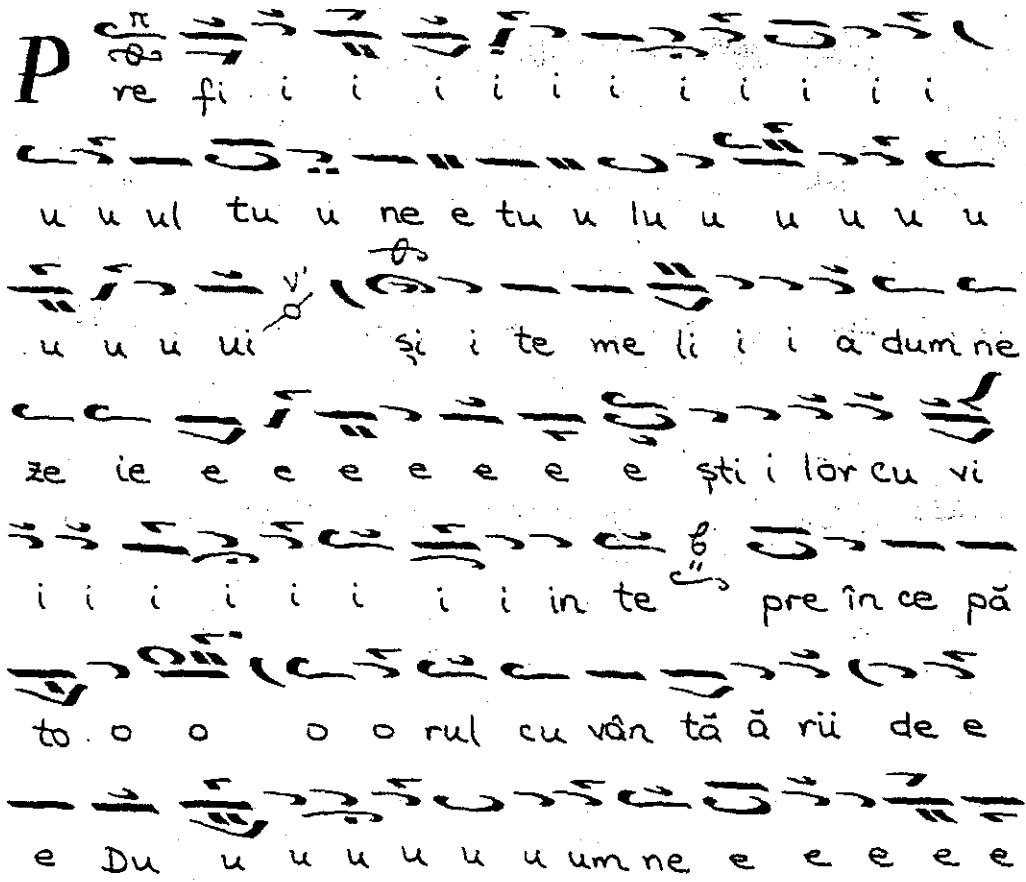 P re fi i i i i i i i i i i i
u u ul tu u ne e tu u lu u u u u u
u u u ui și i te me li i i a dum ne
ze ie e e e e e e e ști i lor cu vi
i i i i i i i i in te pre în ce pă
to o o o o rul cu vân tă ă rii de e
e Du u u u u u u um ne e e e e e